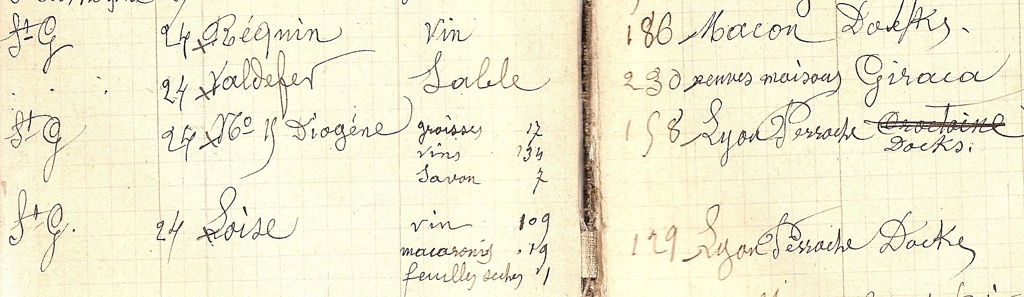 St G 24 x Réquin Vin 186 Macon Docks.
24 x Valdefer Sable 230 peuves maisons Giraca
St G 24 x No 15 Diogène graisses 17 158 Lyon Perrache
vins 134 Docks.
Savon 7
St G. 24 x Loise vin 109 129 Lyon Perrache Docks
macaronis 19
feuilles seches 1